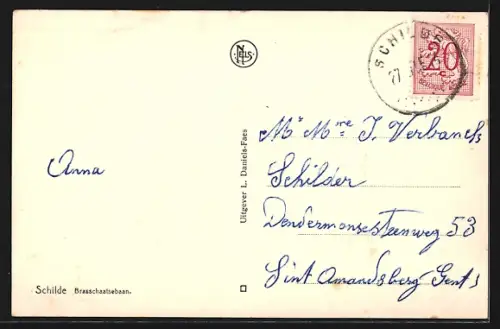 SCHILDE
27
20
c
BELGIQUE
NELS
Mr Mme J. Verbanck
Schilder
Dendermonsesteenweg 53
Sint Amandsberg Gent
Anna
Uitgever L. Daniels-Faes
Schilde Brasschaatsebaan.